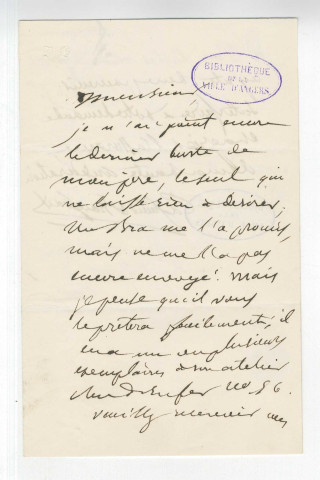 BIBLIOTHÈQUE
DE LA
VILLE D'ANGERS
Monsieur,
je n'ai point encore
le dernier buste de
mon père, le seul qui
ne laisse rien à désirer;
me l'a promis,
mais ne me l'a pas
encore envoyé. Mais
je pense qu'il vous
le prêtera facilement, il
en a un ou plusieurs
exemplaires à son atelier
rue d'Enfer no 56.
veuillez recevoir mes